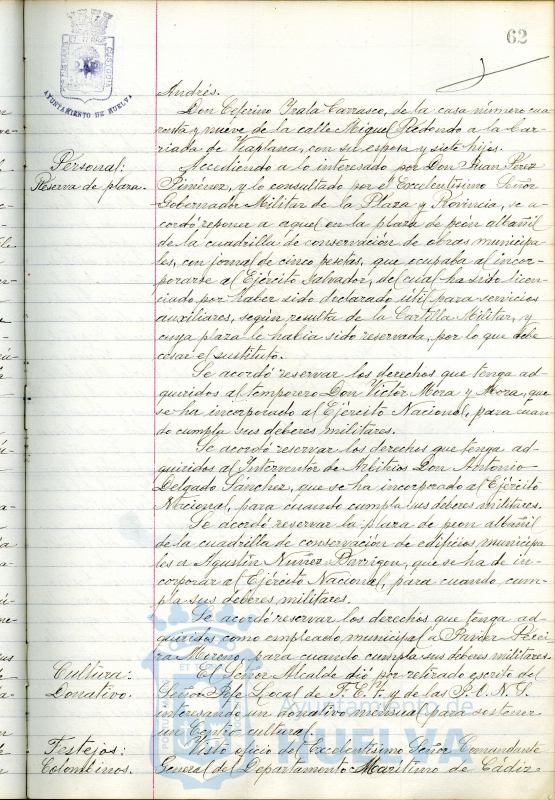 62
AYUNTAMIENTO DE HUELVA
Andrés.
Don Ceferino Prata Carrasco, de la casa número cua
renta y nueve de la calle Miguel Redondo a la ba-
rriada de Viaplana, con su esposa y siete hijos.
Personal:
Reserva de plaza.
Accediendo a lo interesado por Don Juan Pérez
Jiménez, y lo consultado por el Excelentísimo Señor
Gobernador Militar de la Plaza y Provincia, se a-
cordó reponer a aquel en la plaza de peón albañil
de la cuadrilla de conservación de obras municipa-
les, con jornal de cinco pesetas, que ocupaba al incor-
porarse al Ejército Salvador, del cual ha sido licen-
ciado por haber sido declarado útil para servicios
auxiliares, según resulta de la Cartilla Militar, y
cuya plaza le había sido reservada, por lo que debe
cesar el sustituto.
Se acordó reservar los derechos que tenga ad-
quiridos al temporero Don Victor Mora y Mora, que
se ha incorporado al Ejército Nacional, para cuan
do cumpla sus deberes militares.
Se acordó reservar los derechos que tenga ad-
quiridos al Interventor de Arbitrios Don Antonio
Delgado Sánchez, que se ha incorporado al Ejército
Nacional, para cuando cumpla sus deberes militares.
Se acordó reservar la plaza de peon albañil
de la cuadrilla de conservación de edificios municipa
les a Agustín Nuñez Barrigon, que se ha de in-
corporar al Ejército Nacional, para cuando cum-
pla sus deberes militares.
Se acordó reservar los derechos que tenga ad-
quiridos como empleado municipal a Javier
Moreno, para cuando cumpla sus deberes militares.
Cultura:
Donativo.
El Señor Alcalde dió por retirado escrito del
Señor Jefe Local de F.E.T. y de las J.O.N.S.
interesando un donativo mensual para sostener
un Centro cultural.
Festejos:
Colombinos.
Visto oficio del Excelentísimo Señor Comandante
General del Departamento Marítimo de Cádiz
Ayuntamiento de
HUELVA